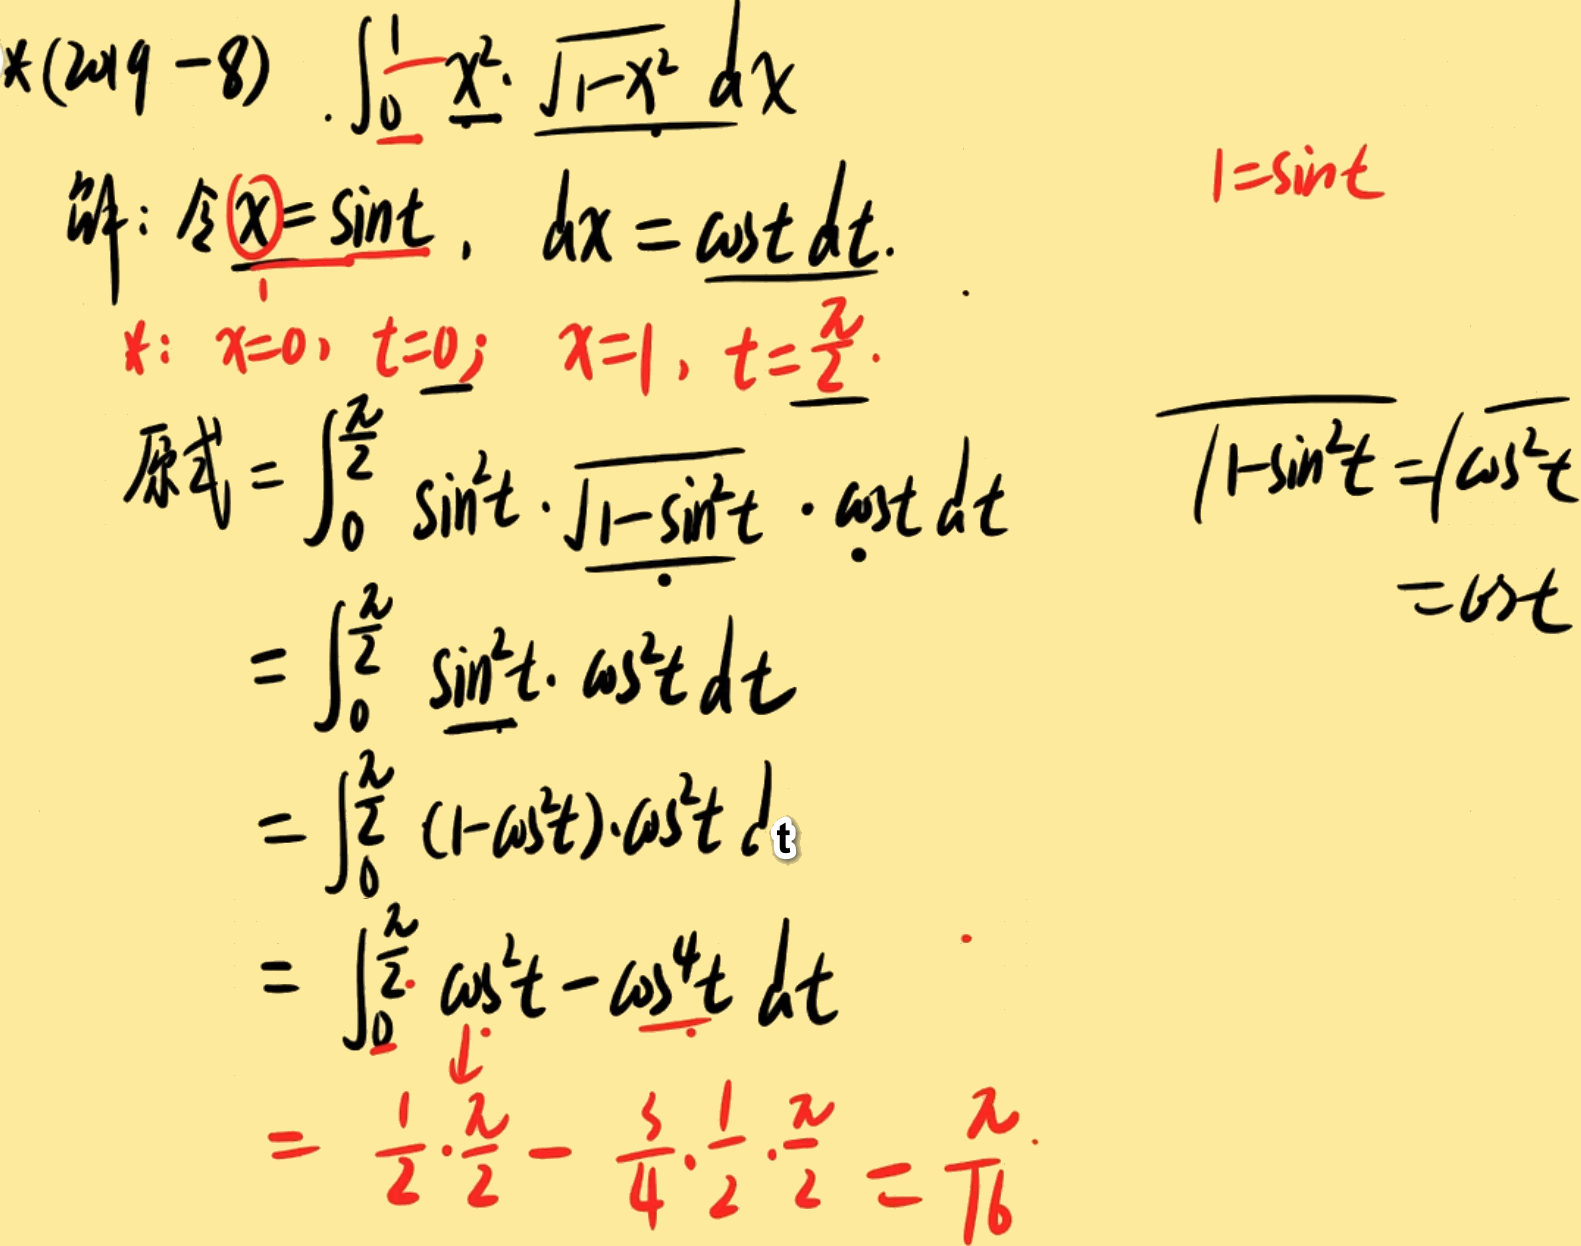 *(2019-8) . ∫₀¹ x²·√(1-x²) dx
1=sint
解: 令 x=sint, dx=cost dt.
*: x=0, t=0; x=1, t=π/2.
原式 = ∫₀^(π/2) sin²t·√(1-sin²t)·cost dt
√(1-sin²t)=√(cos²t)
=cost
= ∫₀^(π/2) sin²t·cos²t dt
= ∫₀^(π/2) (1-cos²t)·cos²t dt
= ∫₀^(π/2) cos²t-cos⁴t dt
= 1/2·π/2 - 3/4·1/2·π/2 = π/16.